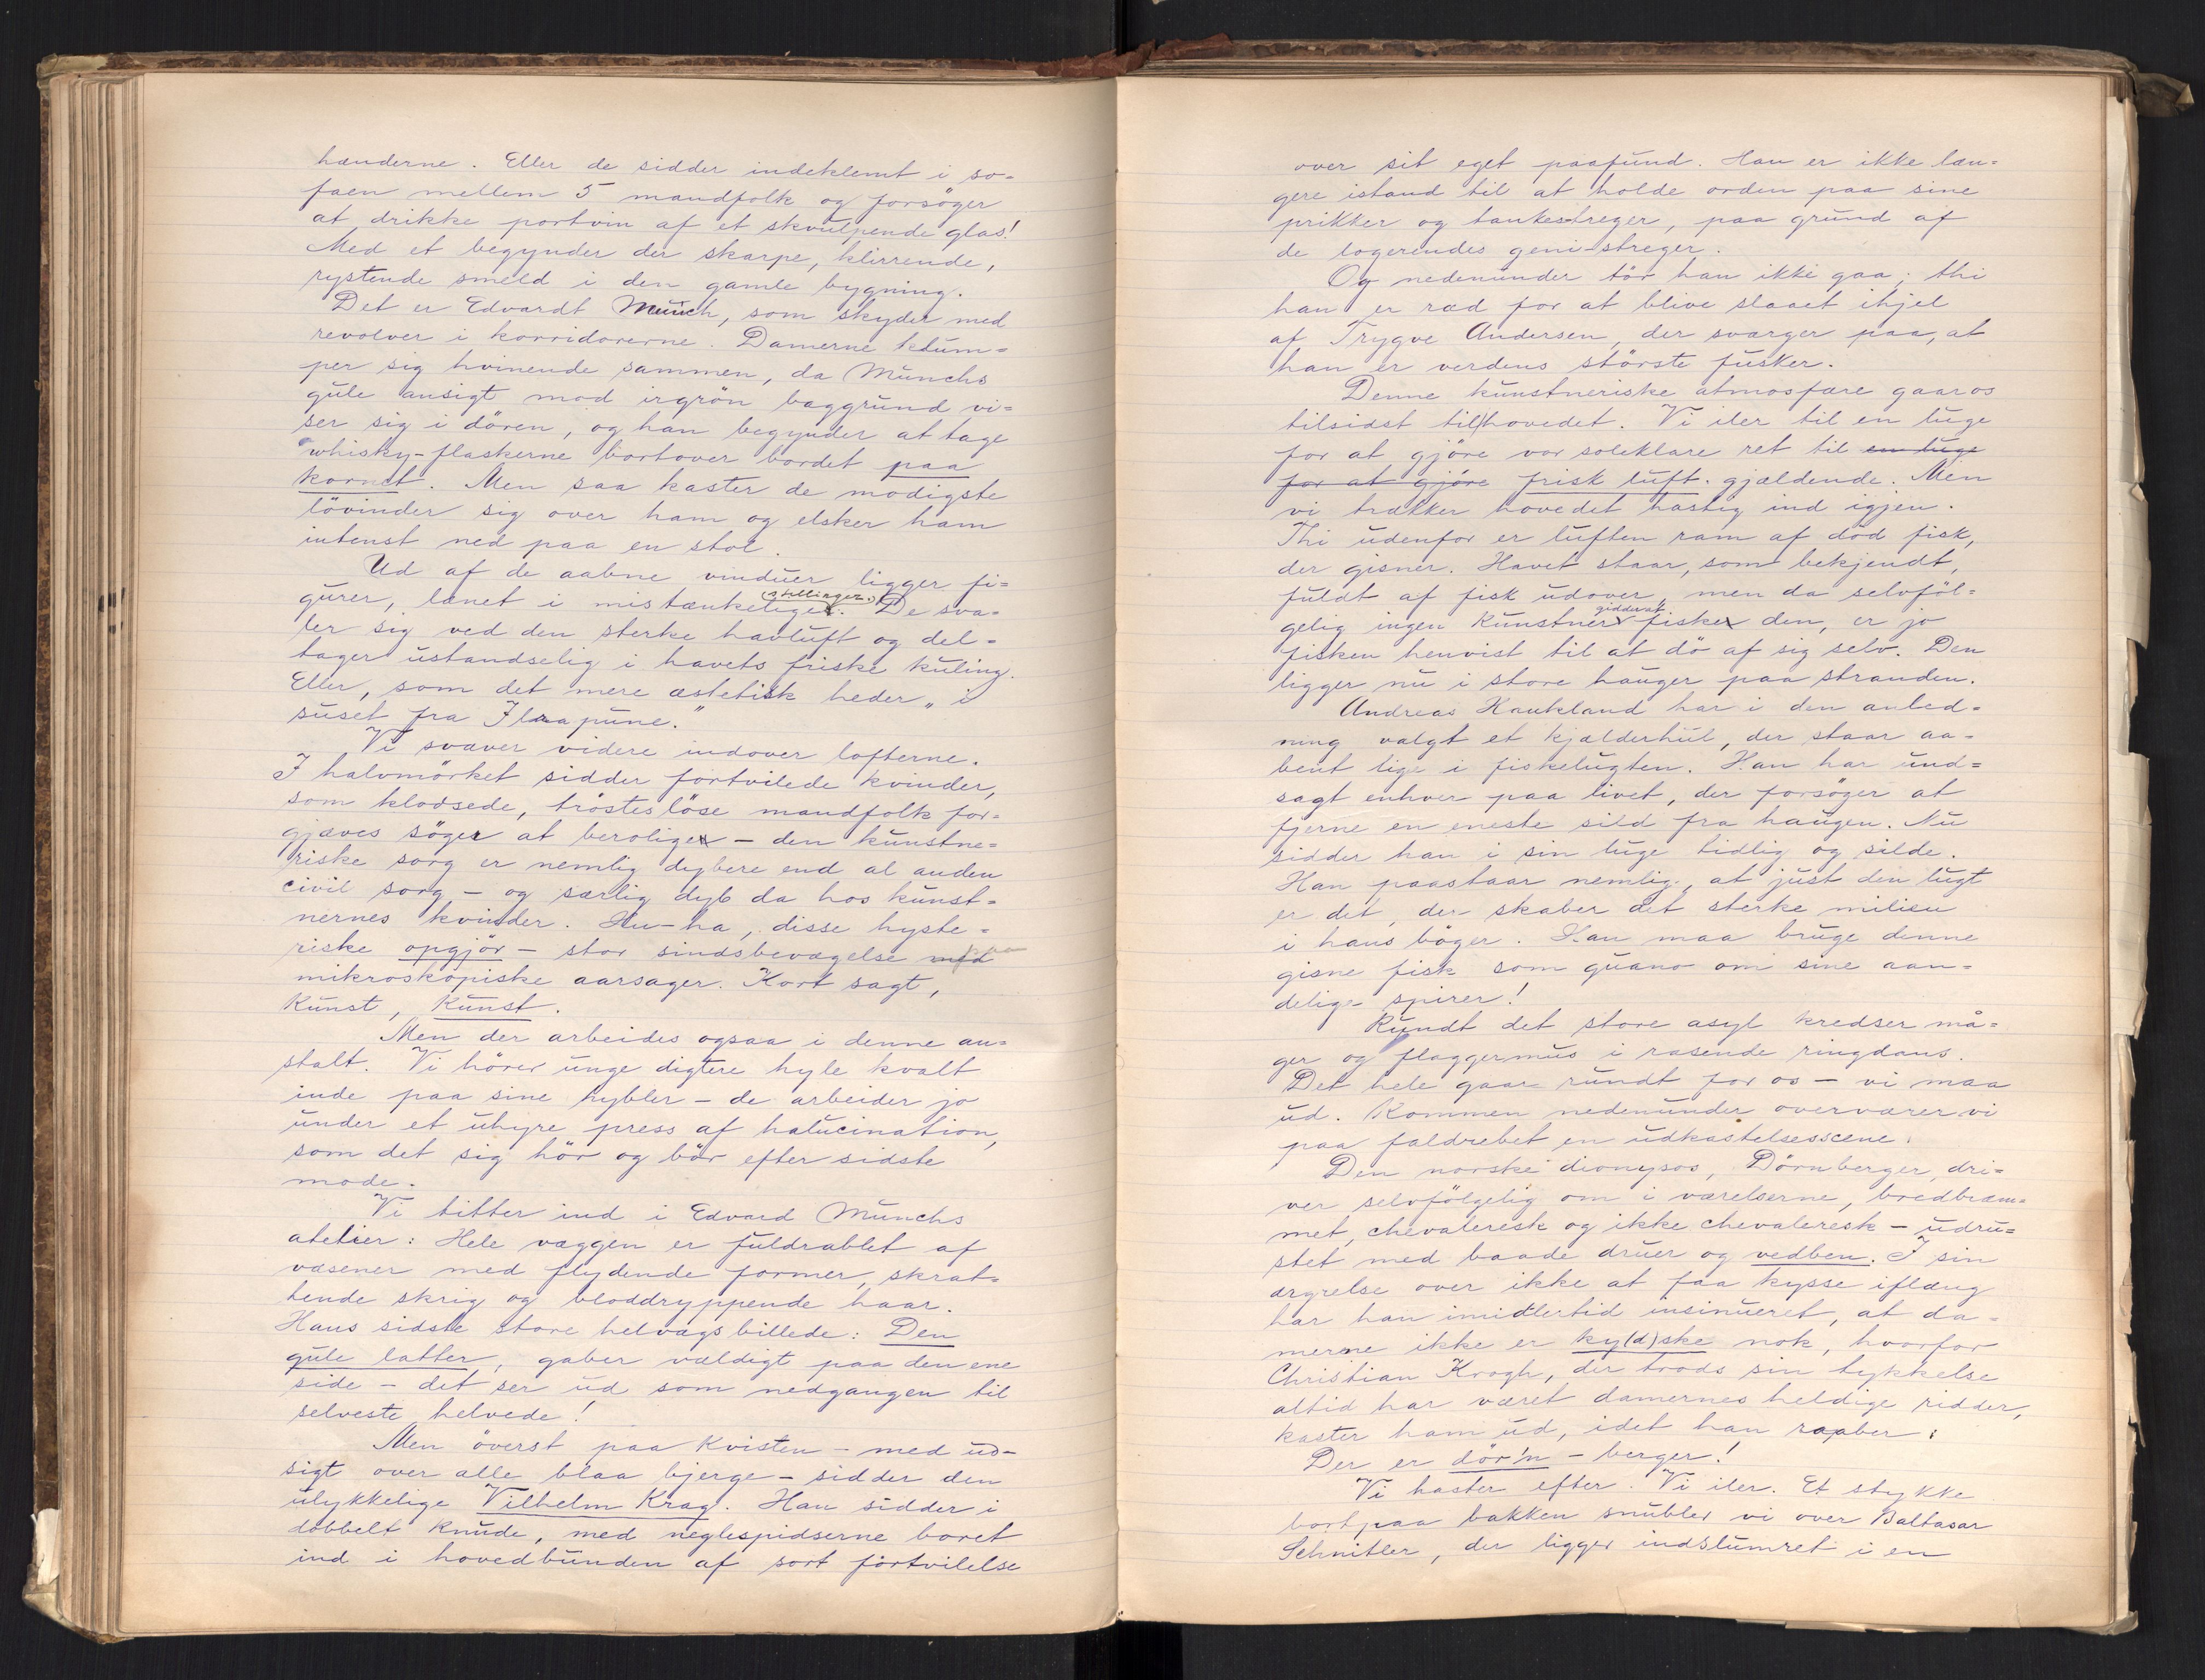 hænderne. Eller de sidder indeklemt i so=
faen mellem 5 mandfolk og forsøger
at drikke portvin af et skvulpende glas!
Med et begynder der skarpe, klirrende,
rystende smeld i den gamle bygning.
Det er Edvardt Munch, som skyder med
revolver i korridorerne. Damerne klum=
per sig hvinende sammen, da Munchs
gule ansigt mod irgrön baggrund vi=
ser sig i dören, og han begynder at tage
whisky-flaskerne bortover bordet paa
kornet. Men saa kaster de modigste
lövinder sig over ham og elsker ham
intenst ned paa en stol.
Ud af de aabne vinduer ligger fi=
gurer, lænet i mistænkelige (stillinger). De sva=
ler sig ved den sterke havluft og del=
tager ustandselig i havets friske kuling.
Eller, som det mere æstetisk heder „i
suset fra Flrapune."
Vi svæver videre indover lofterne.
I halvmörket sidder fortvilede kvinder,
som klodsede, trösteslöse mandfolk for=
gjæves söger at berolige – den kunstne=
riske sorg er nemlig dybere end al anden
civil sorg – og særlig dyb da hos kunst=
nernes kvinder. Hu-ha, disse hyste=
riske opgjör – stor sindsbevægelse med paa
mikroskopiske aarsager. Kort sagt,
Kunst, Kunst.
Men der arbeides ogsaa i denne an=
stalt. Vi hörer unge digtere hyle kvalt
inde paa sine hybler – de arbeider jo
under et uhyre press af halucination,
som det sig hör og bör efter sidste
mode.
Vi titter ind i Edvard Munchs
atelier: Hele væggen er fuldrablet af
væsener med flydende former, skrat=
tende skrig og bloddryppende haar.
Hans sidste store helvægsbillede: Den
gule latter, gaber vældigt paa den ene
side – det ser ud som nedgangen til
selveste helvede!
Men överst paa Kvisten – med ud-
sigt over alle blaa bjerge – sidder den
ulykkelige Vilhelm Krag. Han sidder i
dobbelt Knude, med neglespidserne boret
ind i hovedbunden af sort fortvilelse
over sit eget paafund. Han er ikke læn=
gere istand til at holde orden paa sine
prikker og tankestreger, paa grund af
de logerendes geni-streger.
Og nedenunder tör han ikke gaa; thi
han er ræd for at blive slaaet ihjel
af Trygve Andersen, der sværger paa, at
han er verdens störste fusker.
Denne kunstneriske atmosfære gaar os
tilsidst til hovedet. Vi iler til en luge
for at gjöre vor soleklare ret til en luge
for at gjöre frisk luft. gjældende. Men
vi trækker hovedet hastig ind igjen.
Thi udenfor er luften ram af död fisk,
der gisner. Havet staar, som bekjendt,
fuldt af fisk udover, men da selvföl=
gelig ingen Kunstner gidder at fiske den, er jo
fisken henvist til at dö af sig selv. Den
ligger nu i store hauger paa stranden.
Andreas Haukland har i den anled=
ning valgt et kjælderhul, der staar aa=
bent lige i fiskelugten. Han har und=
sagt enhver paa livet, der forsöger at
fjerne en eneste sild fra haugen. Nu
sidder han i sin luge tidlig og silde.
Han paastaar nemlig, at just den lugt
er det, der skaber det sterke milieu
i hans böger. Han maa bruge denne
gisne fisk som guano om sine aan=
delige spirer!
Rundt det store asyl kredser må=
ger og flaggermus i rasende ringdans.
Det hele gaar rundt for os – vi maa
ud. Kommen nedenunder overværer vi
paa faldrebet en udkastelsesscene:
Den norske dionysos, Dörnberger, dri=
ver selvfölgelig om i værelserne, bredbræm=
met, chevaleresk og ikke chevaleresk – udru=
stet med baade druer og vedben. I sin
ærgrelse over ikke at faa kysse iflæng
har han imidlertid insinueret, at da=
merne ikke er ky(d)ske nok, hvorfor
Christian Krogh, der trods sin tykkelse
altid har været damernes heldige ridder,
kaster ham ud, idet han raaber:
Der er dör'n – berger!
Vi haster efter. Vi iler. Et stykke
bort paa bakken snubler vi over Baltasar
Schnitler, der ligger indslumret i en